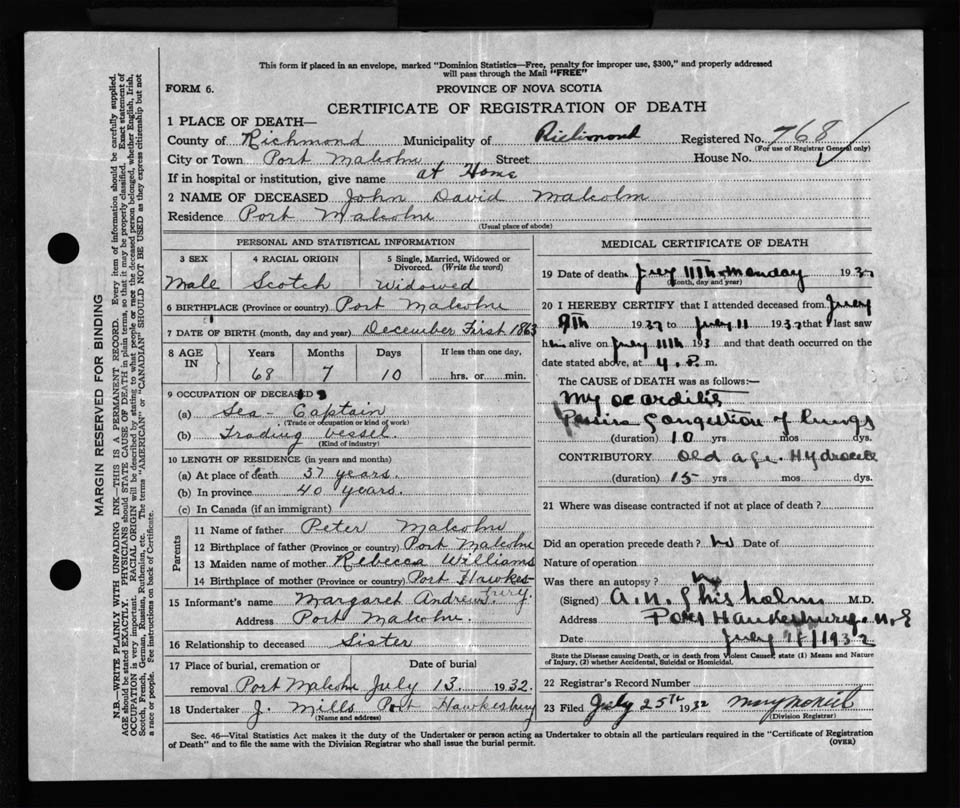 This form if placed in an envelope, marked "Dominion Statistics—Free, penalty for improper use, $300," and properly addressed
will pass through the Mail "FREE"
FORM 6.
PROVINCE OF NOVA SCOTIA
CERTIFICATE OF REGISTRATION OF DEATH
1 PLACE OF DEATH—
County of Richmond Municipality of Richmond Registered No. 768
(For use of Registrar General only)
City or Town Port Malcolm Street House No.
If in hospital or institution, give name at Home
2 NAME OF DECEASED John David Malcolm
Residence Port Malcolm
(Usual place of abode)
PERSONAL AND STATISTICAL INFORMATION
3 SEX 4 RACIAL ORIGIN 5 Single, Married, Widowed or
Divorced. (Write the word)
Male Scotch Widowed
6 BIRTHPLACE (Province or country) Port Malcolm
7 DATE OF BIRTH (month, day and year) December First 1863
8 AGE IN Years Months Days If less than one day,
68 7 10 hrs. or min.
9 OCCUPATION OF DECEASED
(a) Sea-Captain
(Trade or occupation or kind of work)
(b) Trading vessel.
(Kind of industry)
10 LENGTH OF RESIDENCE (in years and months)
(a) At place of death 37 years.
(b) In province 40 years.
(c) In Canada (if an immigrant)
Parents
11 Name of father Peter Malcolm
12 Birthplace of father (Province or country) Port Malcolm
13 Maiden name of mother Rebecca Williams
14 Birthplace of mother (Province or country) Port Hawkes-
bury.
15 Informant's name Margaret Andrews
Address Port Malcolm.
16 Relationship to deceased Sister
17 Place of burial, cremation or Date of burial
removal Port Malcolm July 13 1932.
18 Undertaker J. Mills Port Hawkesbury
(Name and address)
MEDICAL CERTIFICATE OF DEATH
19 Date of death July 11th Monday 1932
(Month, day and year)
20 I HEREBY CERTIFY that I attended deceased from July
9th 1932 to July 11 1932 that I last saw
him alive on July 11th 193 and that death occurred on the
date stated above, at 4 P. m.
The CAUSE OF DEATH was as follows:—
Myocarditis
Passive Congestion of lungs
(duration) 10 yrs mos dys.
CONTRIBUTORY Old age. Hydrocele
(duration) 15 yrs mos. dys.
21 Where was disease contracted if not at place of death?
Did an operation precede death? No Date of
Nature of operation
Was there an autopsy? No
(Signed) A. N. Chisholm M.D.
Address Port Hawkesbury N.S
Date July 1932
State the Disease causing Death, or in death from Violent Causes, state (1) Means and Nature
of Injury, (2) whether Accidental, Suicidal or Homicidal.
22 Registrar's Record Number
23 Filed July 25th 1932 Mary McNeil
(Division Registrar)
Sec. 46—Vital Statistics Act makes it the duty of the Undertaker or person acting as Undertaker to obtain all the particulars required in the "Certificate of Registration
of Death" and to file the same with the Division Registrar who shall issue the burial permit. (OVER)
MARGIN RESERVED FOR BINDING
N.B.—WRITE PLAINLY WITH UNFADING INK—THIS IS A PERMANENT RECORD. Every item of information should be carefully supplied.
AGE should be stated EXACTLY. PHYSICIANS should STATE CAUSE OF DEATH in plain terms, so that it may be properly classified. Exact statement of
OCCUPATION is very important. RACIAL ORIGIN will be described by stating to what people or race the deceased person belonged, whether English, Irish,
Scotch, French, German, Russian, Ruthenian, etc. The terms "AMERICAN" or "CANADIAN" SHOULD NOT BE USED as they express citizenship but not
a race or people. See instructions on back of Certificate.